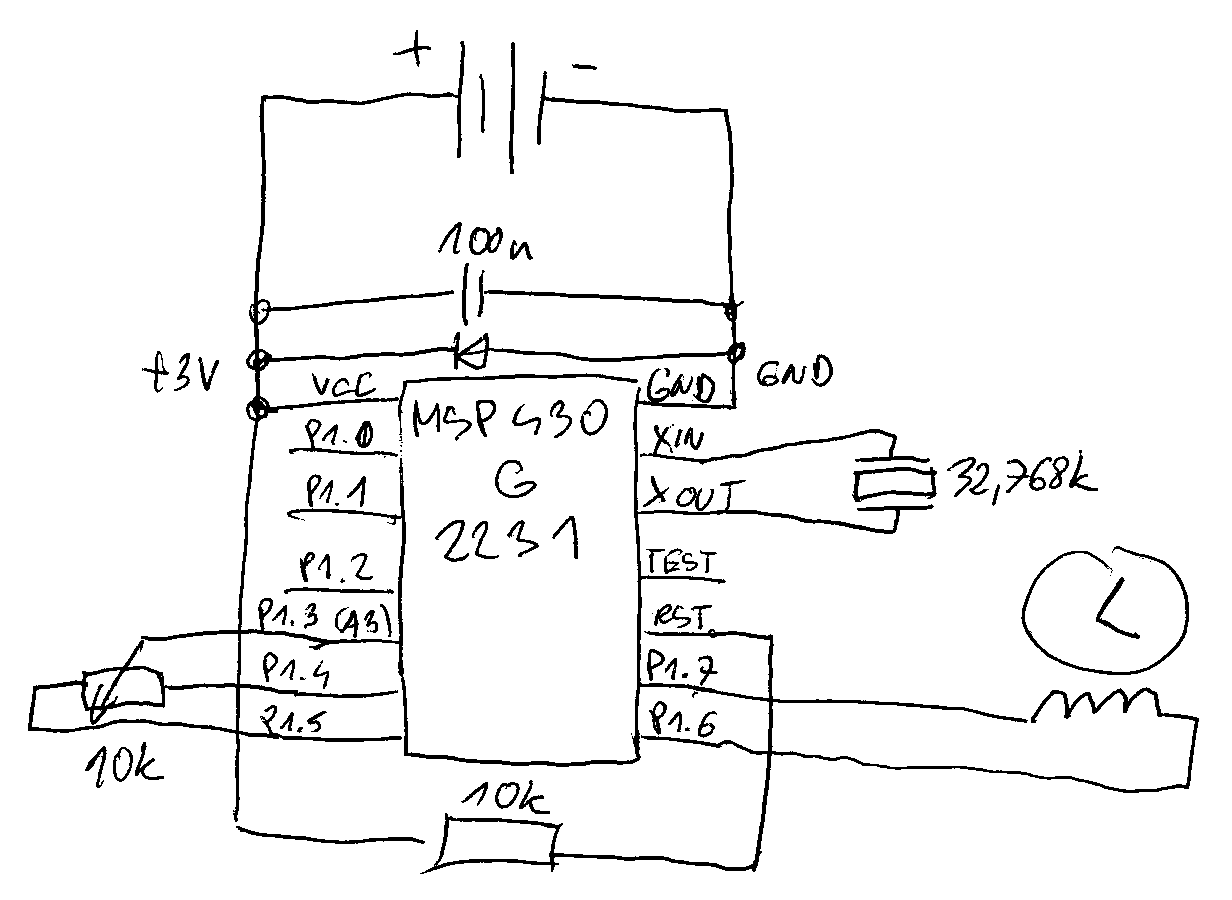 + -
100n
+3V
GND
VCC
GND
MSP430
G
2231
P1.0
P1.1
P1.2
P1.3 (A3)
P1.4
P1.5
XIN
XOUT
TEST
RST
P1.7
P1.6
32,768k
10k
10k